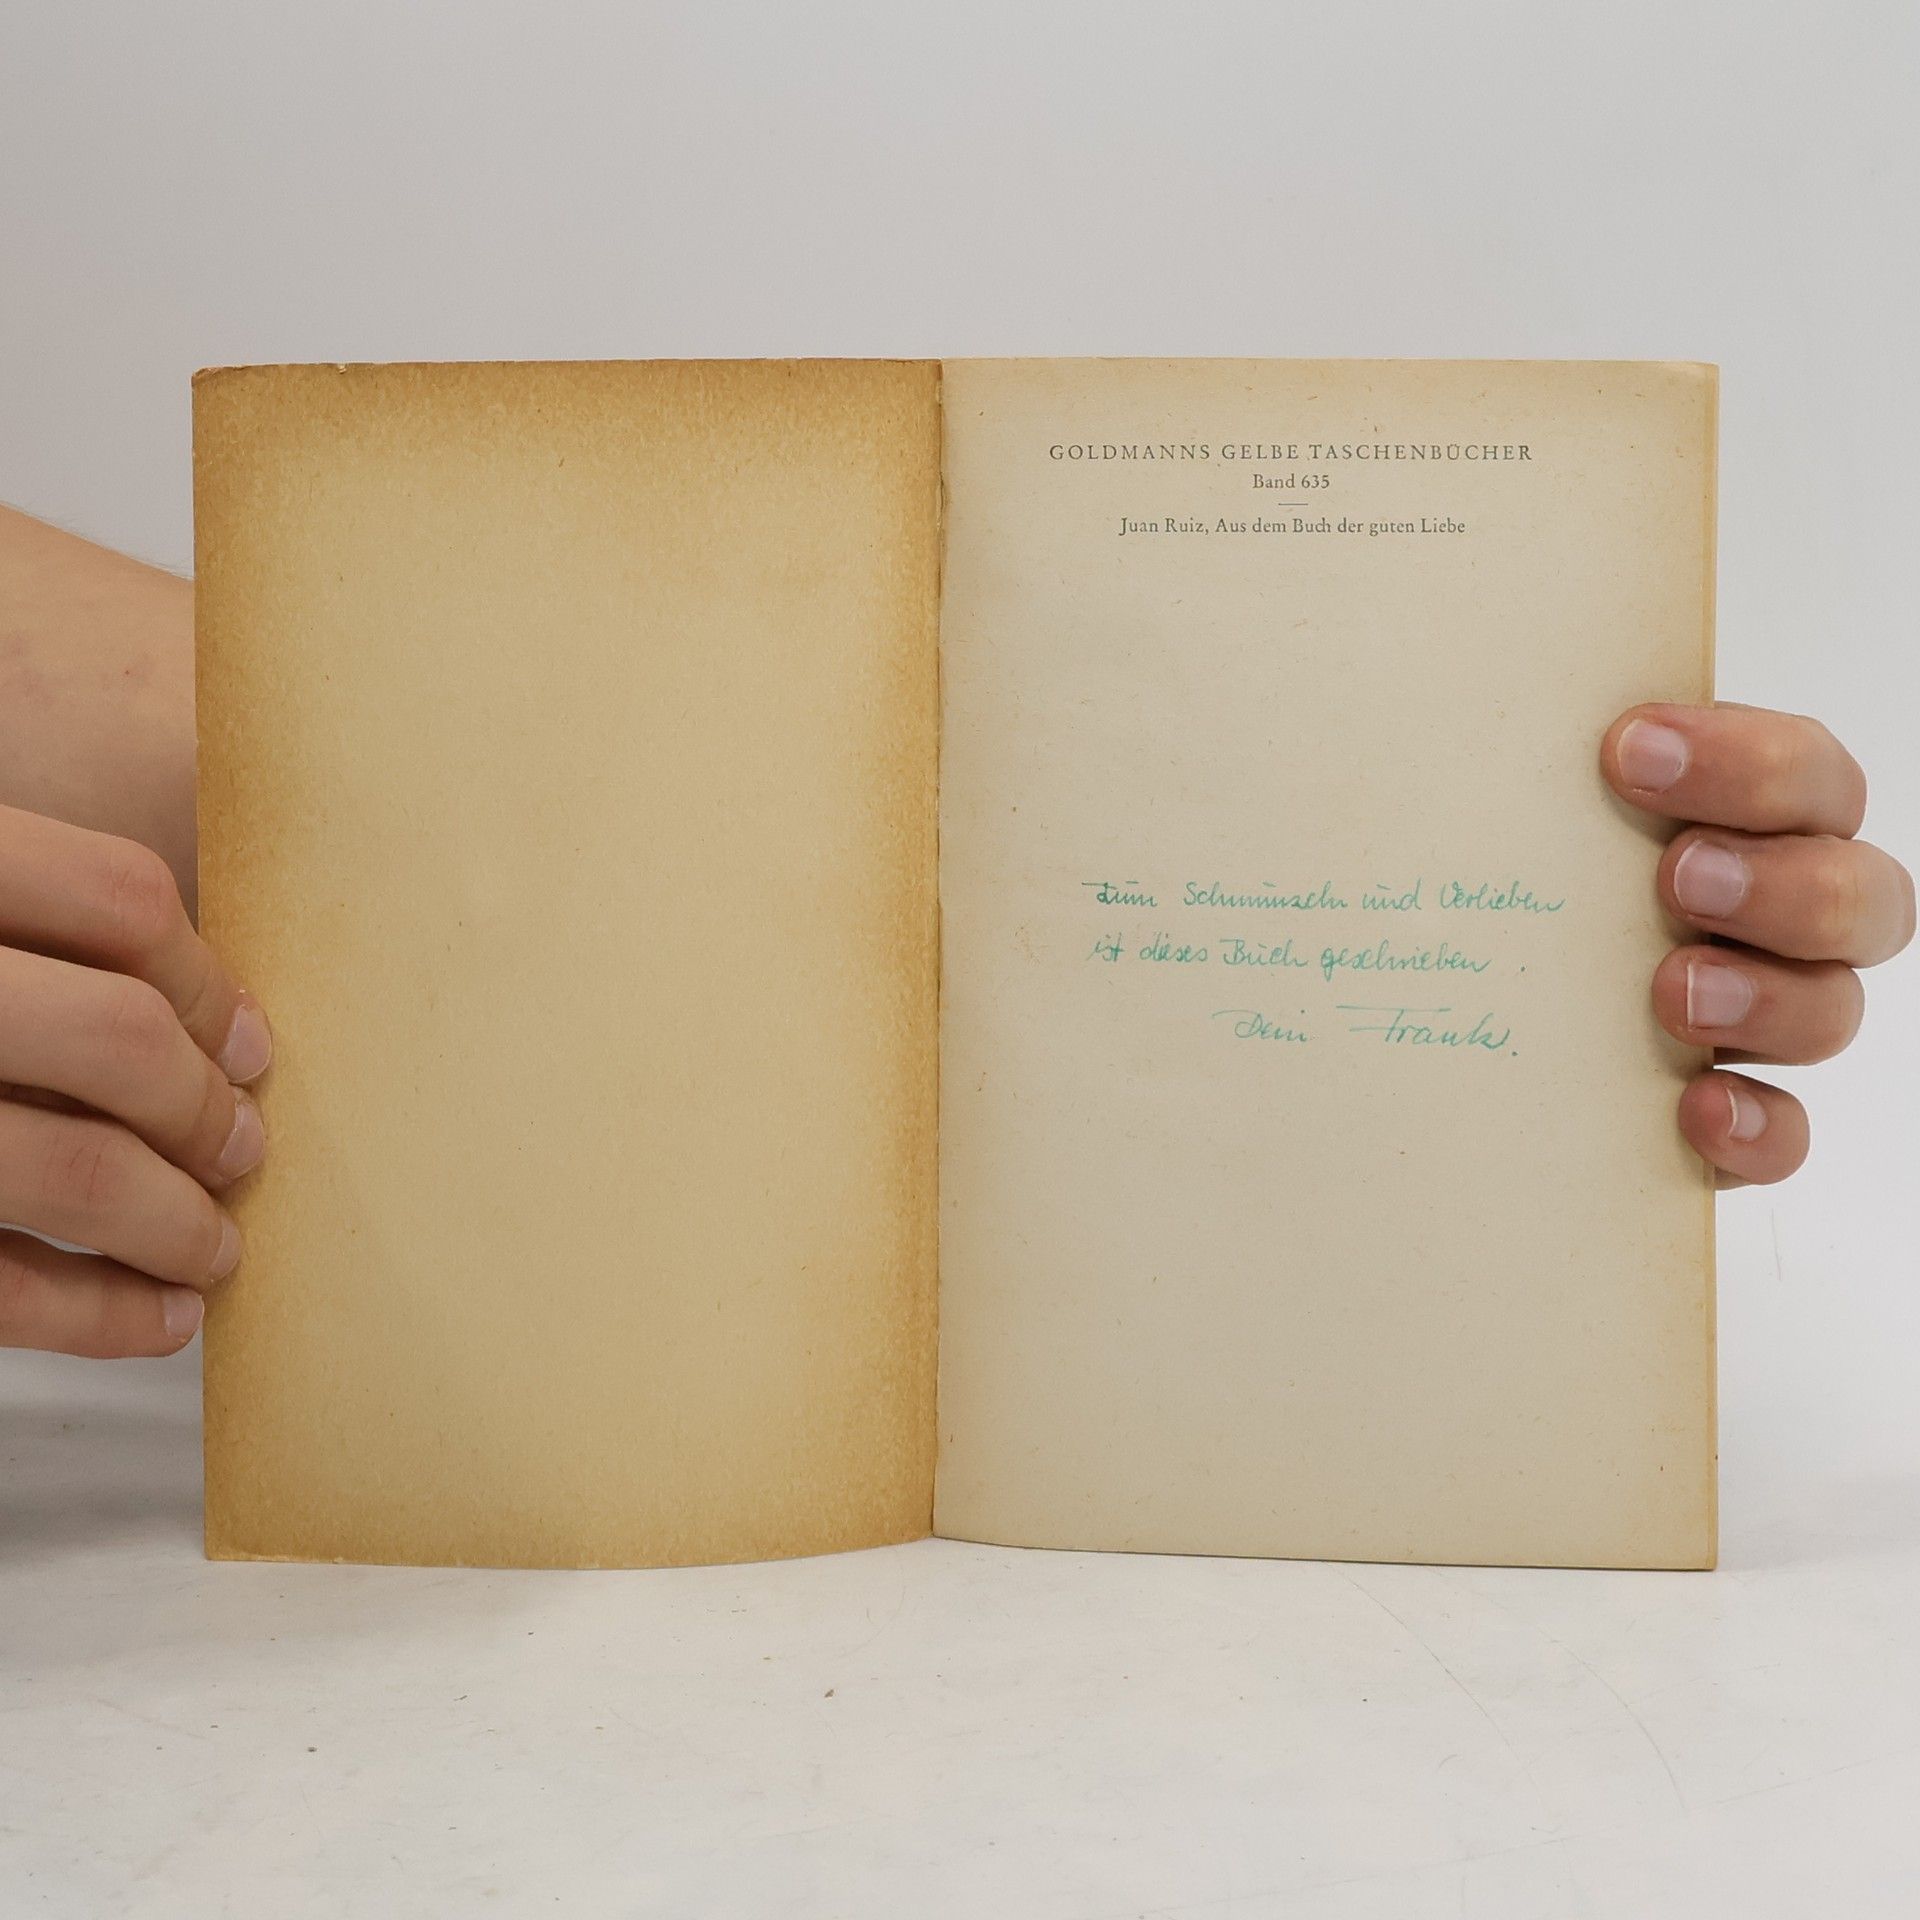 GOLDMANNS GELBE TASCHENBÜCHER
Band 635
Juan Ruiz, Aus dem Buch der guten Liebe
Zum Schmunzeln und Verlieben
ist dieses Buch geschrieben.
Dein Frank.